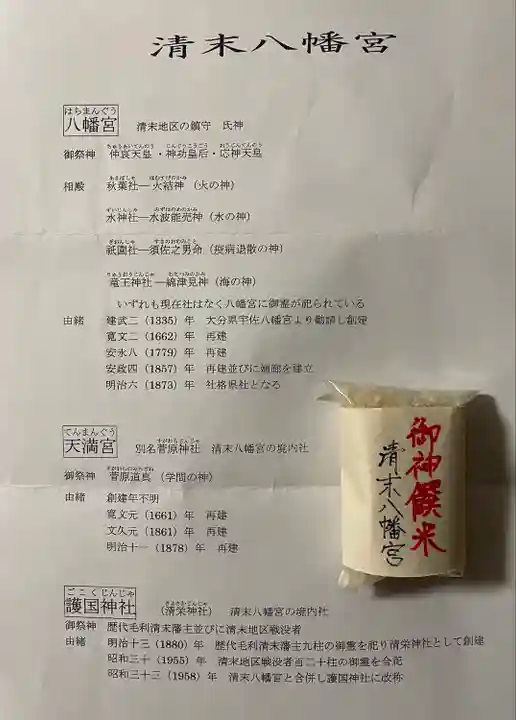 清末八幡宮
はちまんぐう
八幡宮 清末地区の鎮守 氏神
ちゅうあいてんのう じんぐうこうごう おうじんてんのう
御祭神 仲哀天皇・神功皇后・応神天皇
あきばしゃ ほむすびのかみ
相殿 秋葉社―火結神(火の神)
すいじんしゃ みずはのめのかみ
水神社―水波能売神(水の神)
ぎおんしゃ すさのおのみこと
祇園社―須佐之男命(疫病退散の神)
りゅうおうじんじゃ わたつみのかみ
竜王神社―綿津見神(海の神)
いずれも現在社はなく八幡宮に御霊が祀られている
由緒 建武二(1335)年 大分県宇佐八幡宮より勧請し創建
寛文二(1662)年 再建
安永八(1779)年 再建
安政四(1857)年 再建並びに廻廊を建立
明治六(1873)年 社格県社となる
てんまんぐう
天満宮 別名菅原神社 清末八幡宮の境内社
御祭神 菅原道真(学問の神)
由緒 創建年不明
寛文元(1661)年 再建
文久元(1861)年 再建
明治十一(1878)年 再建
ごこくじんじゃ
護国神社(清栄神社) 清末八幡宮の境内社
御祭神 歴代毛利清末藩主並びに清末地区戦没者
由緒 明治十三(1880)年 歴代毛利清末藩主九柱の御霊を祀り清栄神社として創建
昭和三十(1955)年 清末地区戦没者百二十柱の御霊を合祀
昭和三十三(1958)年 清末八幡宮と合併し護国神社に改称
御神饌米
清末八幡宮